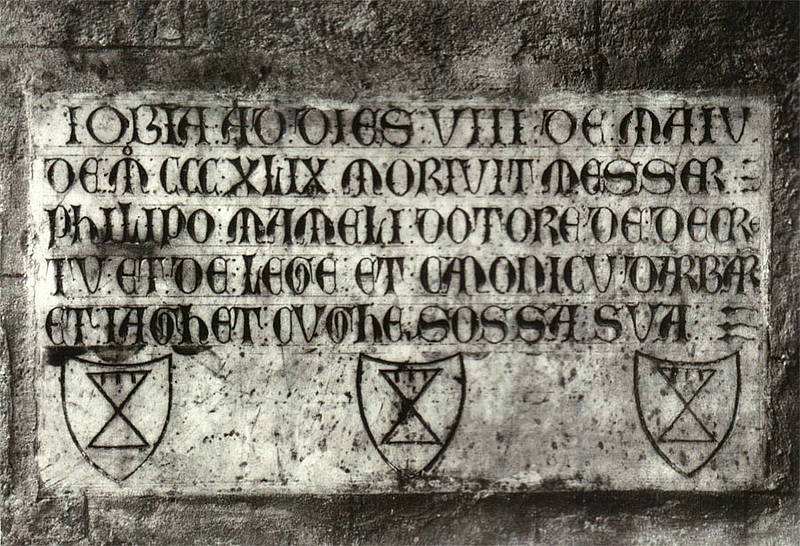 IOBIA AD DIES VIII DE MAIU
DE M CCCXLIX MORIVIT MESSER
PHILIPO MAMELI DOTORE DE DECRE
TU ET DE LEGE ET CANONICU DARBAR
ET IAGHET CUGHE SOS SA SUA